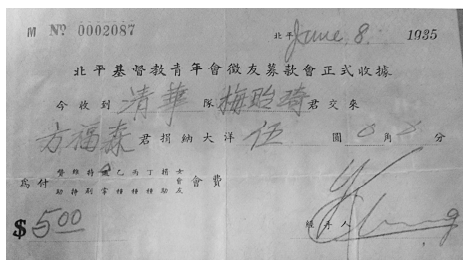 M Nº 0002087
北平 June 8. 1935
北平基督教青年會徵友募款會正式收據
今收到 清華 隊 梅貽琦 君交來
方福森 君捐納大洋 伍 圓 0 角 0 分
為付 贊助 維持 特別 乙種 丙種 丁種 捐助 女會友 會費
$ 5.00
經手人